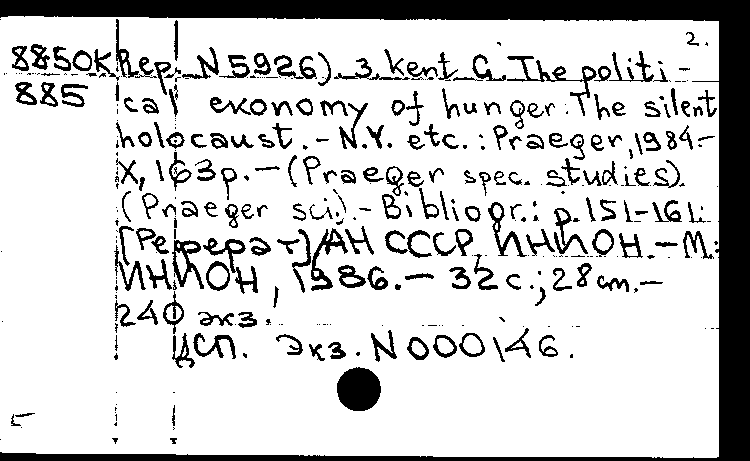 2.
8850К Rep. N 5926). 3. Kent G. The politi-
885 cal exonomy of hunger: The silent
holocaust. - N.Y. etc.: Praeger, 1984.-
X, 163p. - (Praeger spec. studies).
(Praeger sci.) - Bibliogr.: p. 151-161.
[Реферат] / АН СССР, ИНИОН. - М.:
ИНИОН, 1986. - 32 с.; 28 cm. -
240 экз.
ДСП. Экз. N 000146.